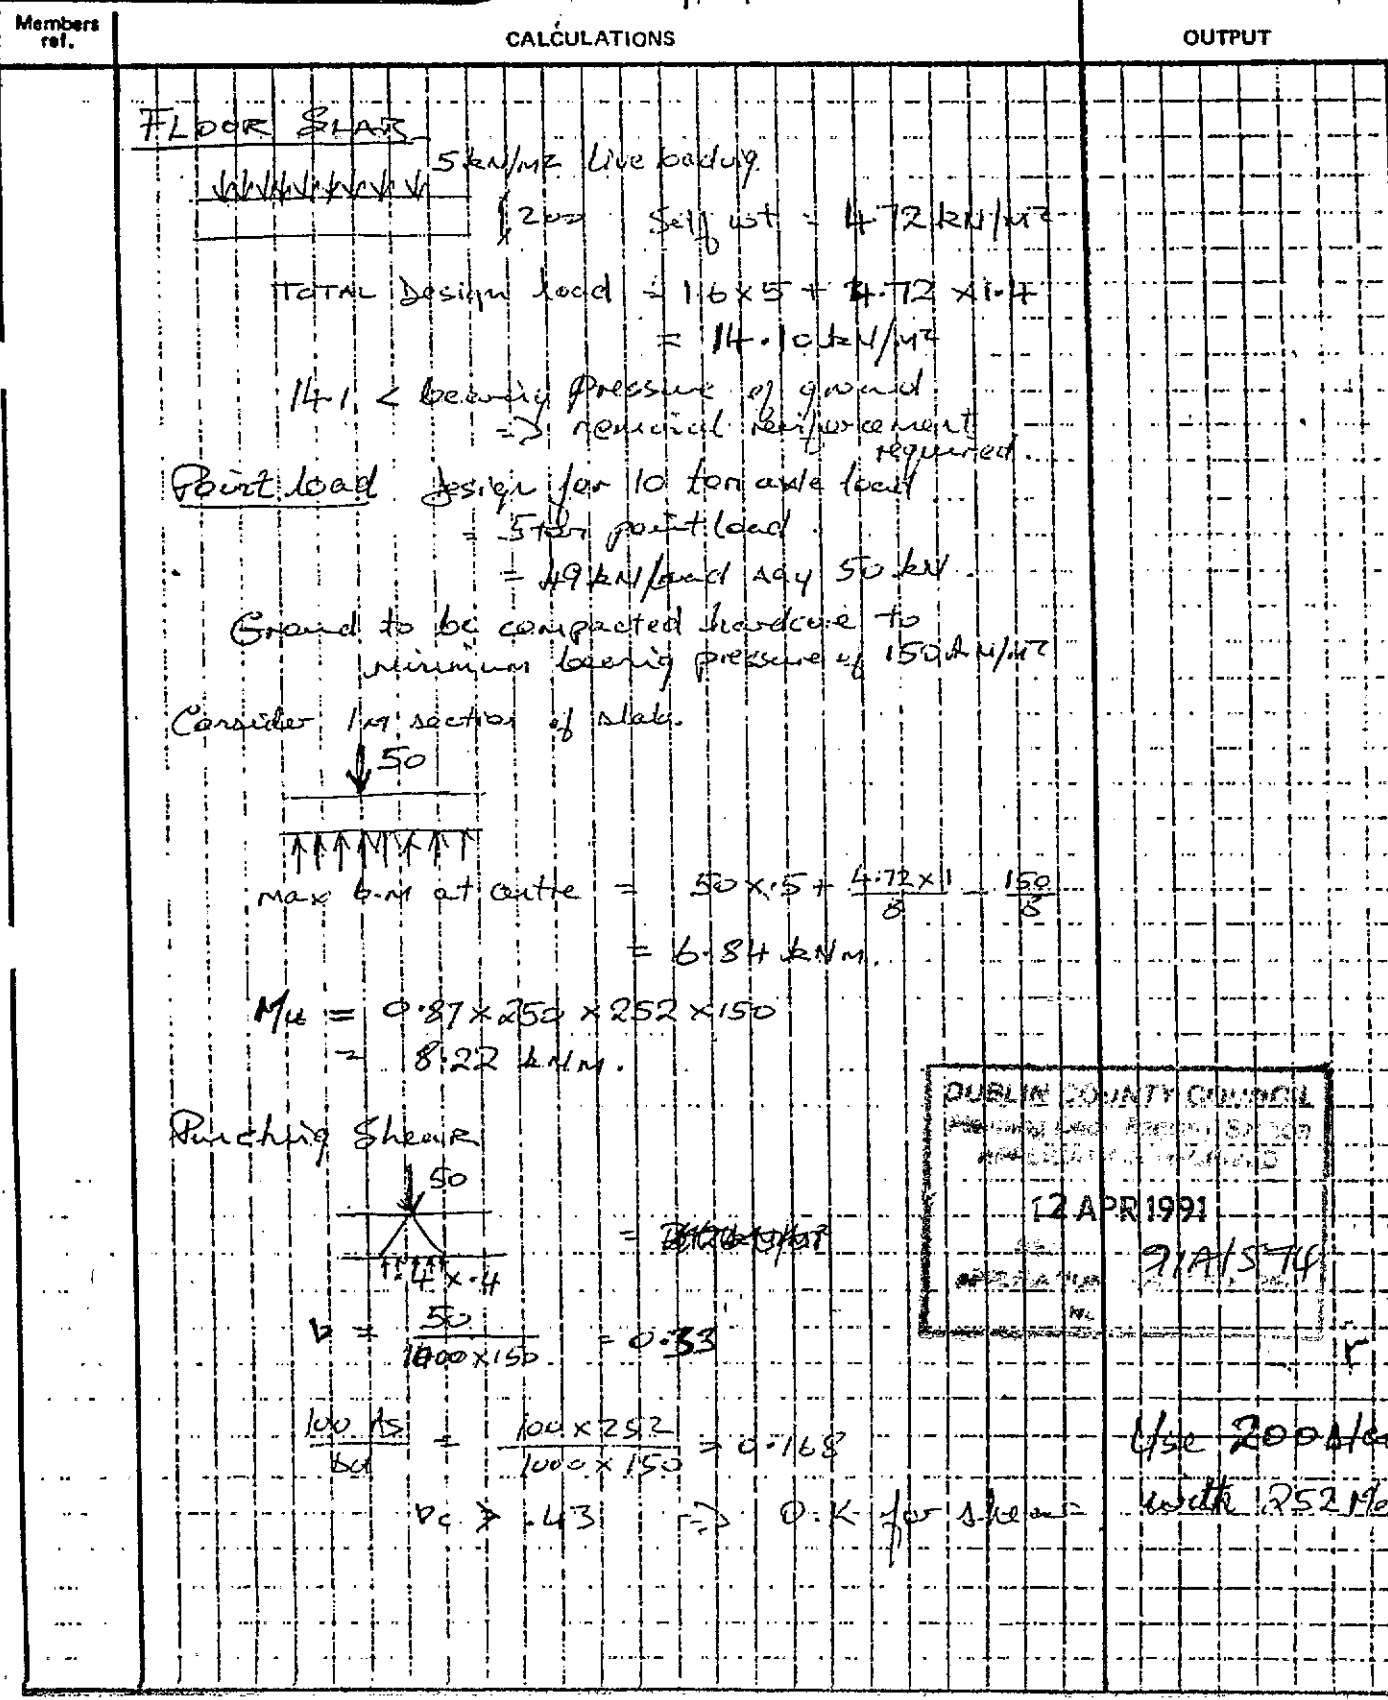 Members
ref.
CALCULATIONS
OUTPUT
FLOOR SLAB
5 kN/m2 Live loading
200 Self wt = 4.72 kN/m2
TOTAL Design load = 1.6 x 5 + 4.72 x 1.4
= 14.10 kN/m2
14.1 < bearing pressure of ground
=> nominal reinforcement
required.
Point load Design for 10 ton axle load
= 5 ton point load
= 49 kN/ say 50 kN.
Ground to be compacted hardcore to
minimum bearing pressure of 150 kN/m2
Consider 1m section of slab.
50
Max b.m at centre = 50 x .5 + 4.72 x 1 / 8 - 150 / 8
= 6.84 kNm.
Mu = 0.87 x 250 x 252 x 150
= 8.22 kNm.
Punching Shear
50
.4 x .4
=
v = 50 / 1000 x 150 = 0.33
100 As / bd = 100 x 252 / 1000 x 150 = 0.168
vc > .43 => O.K for shear
Use 200
with 252 Me
DUBLIN COUNTY COUNCIL
12 APR 1991
91A/574